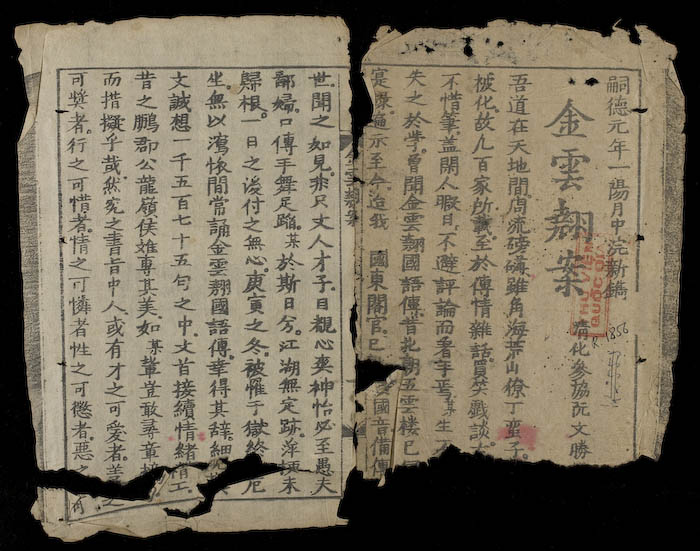 嗣德元年一陽月中浣新鐫
金雲翹案
清化參協阮文勝
吾道在天地間周流磅礴雖角海荒山僚丁蠻子。
被化故凡百家所載。至於傳情雜話。買笑戲談。
不惜筆。蓋閑人暇日。不避評論而看字焉。某生
失之於學。曾聞金雲翹國語傳。昔北朝五雲樓已
寔錄。遍示至今。迨我 國東閣官。已 國音備傳
世。聞之如見。非只文人才子。目觀心爽神怡。必至愚夫
鄙婦。口傳手舞足蹈。某於斯日兮。江湖無定跡。萍梗未
歸根。一日之後。付之無心。庚寅之冬。被罹于獄。終 厄
坐。無以瀉懷。間常誦金雲翹國語傳。華得其辭。細
文。誠想一千五百七十五句之中。文首接續。情緒精工。
昔之鵬郡公。龍嶺侯。雄專其美。如某輩豈敢尋章摘
而措擬乎哉。然究之書旨中人。或有才之可愛者。善之
可獎者。行之可惜者。情之可憐者。性之可懲者。惡之 可
QUỐC
856